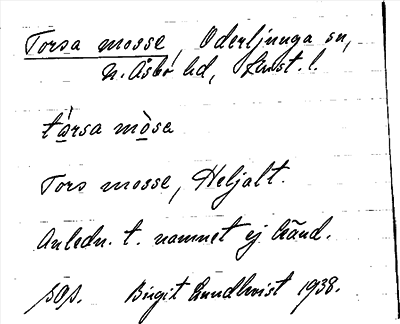 Torsa mosse, Oderljunga sn,
N. Åsbo hd, Krist. l.
tàrsa mòse
Tors mosse, Heljalt.
Anledn. t. namnet ej känd.
sOs. Birgit Lundkvist 1938.